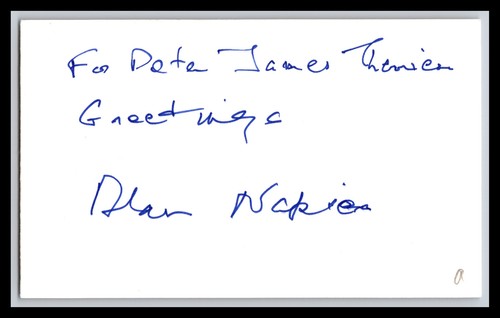 For Peter James Therien
Greetings
Alan Napier
a